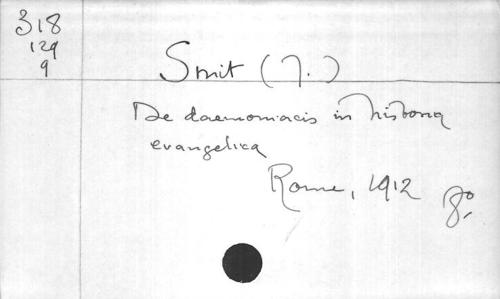 318
129
9
Smit (J.)
De daemoniacis in historia
evangelica
Rome, 1912
8º.